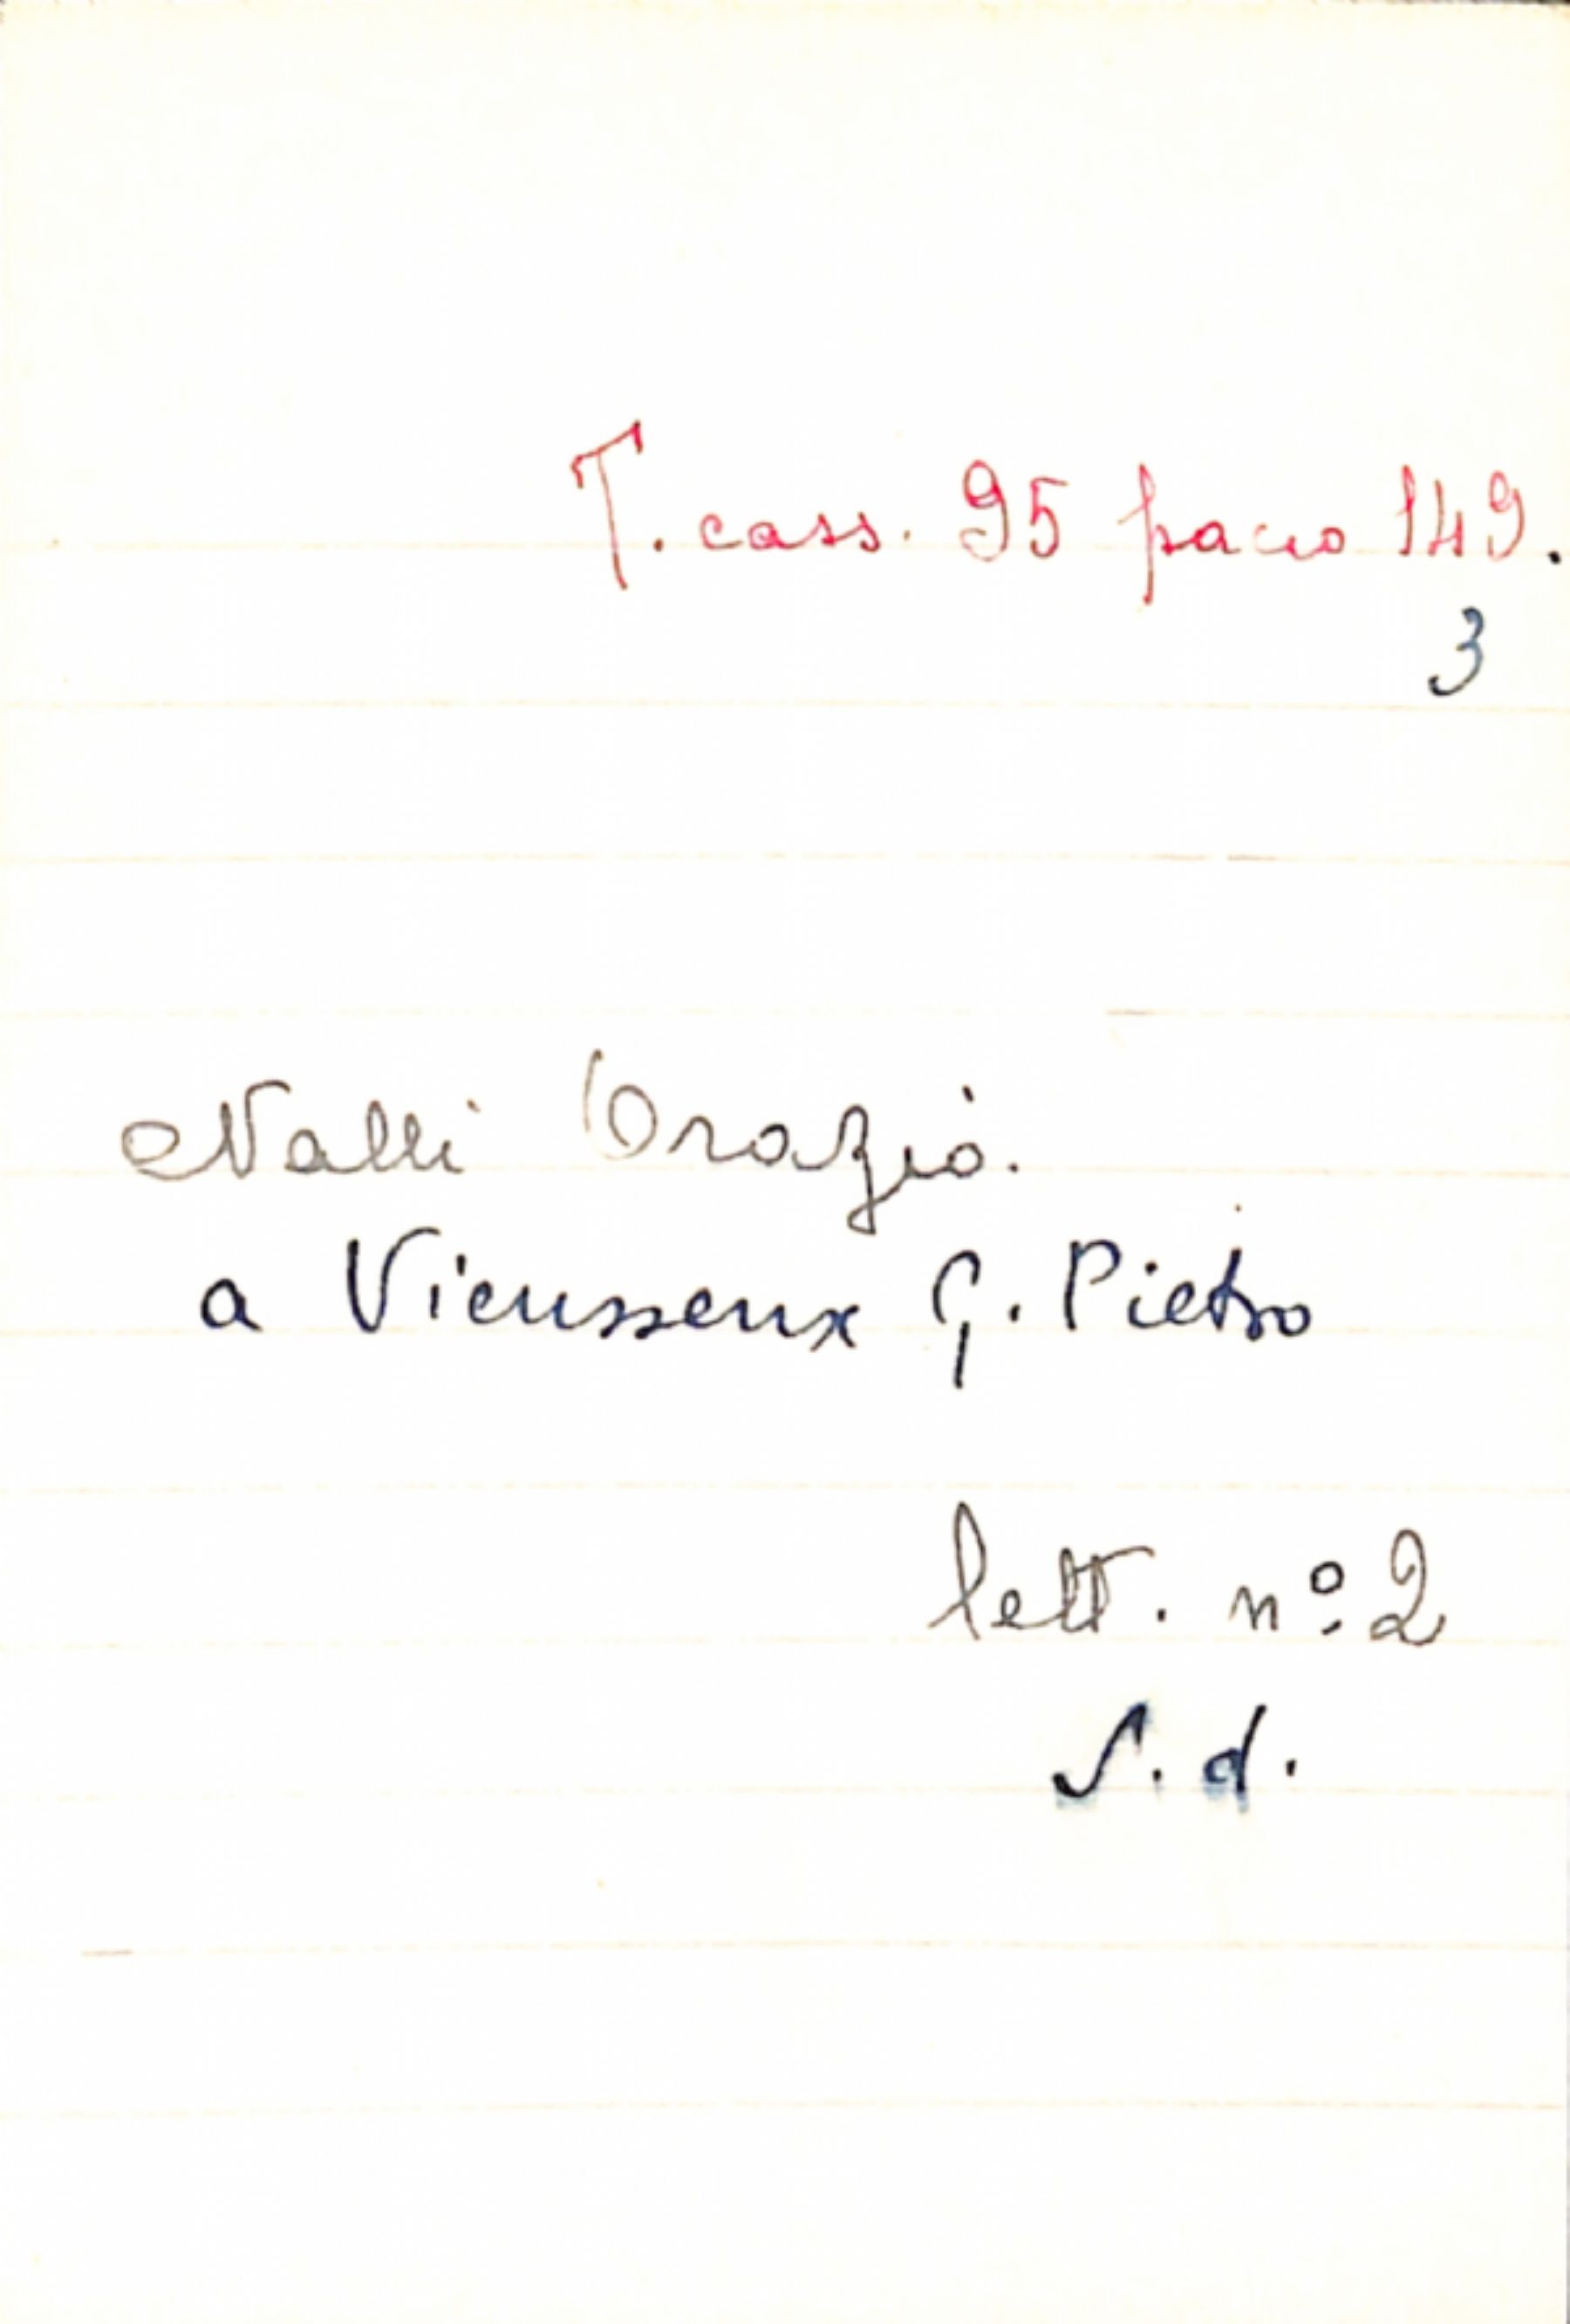 T. cass. 95 pacco 149.
3
Nalli Orazio.
a Vieusseux G. Pietro
lett. nº 2
S. d.